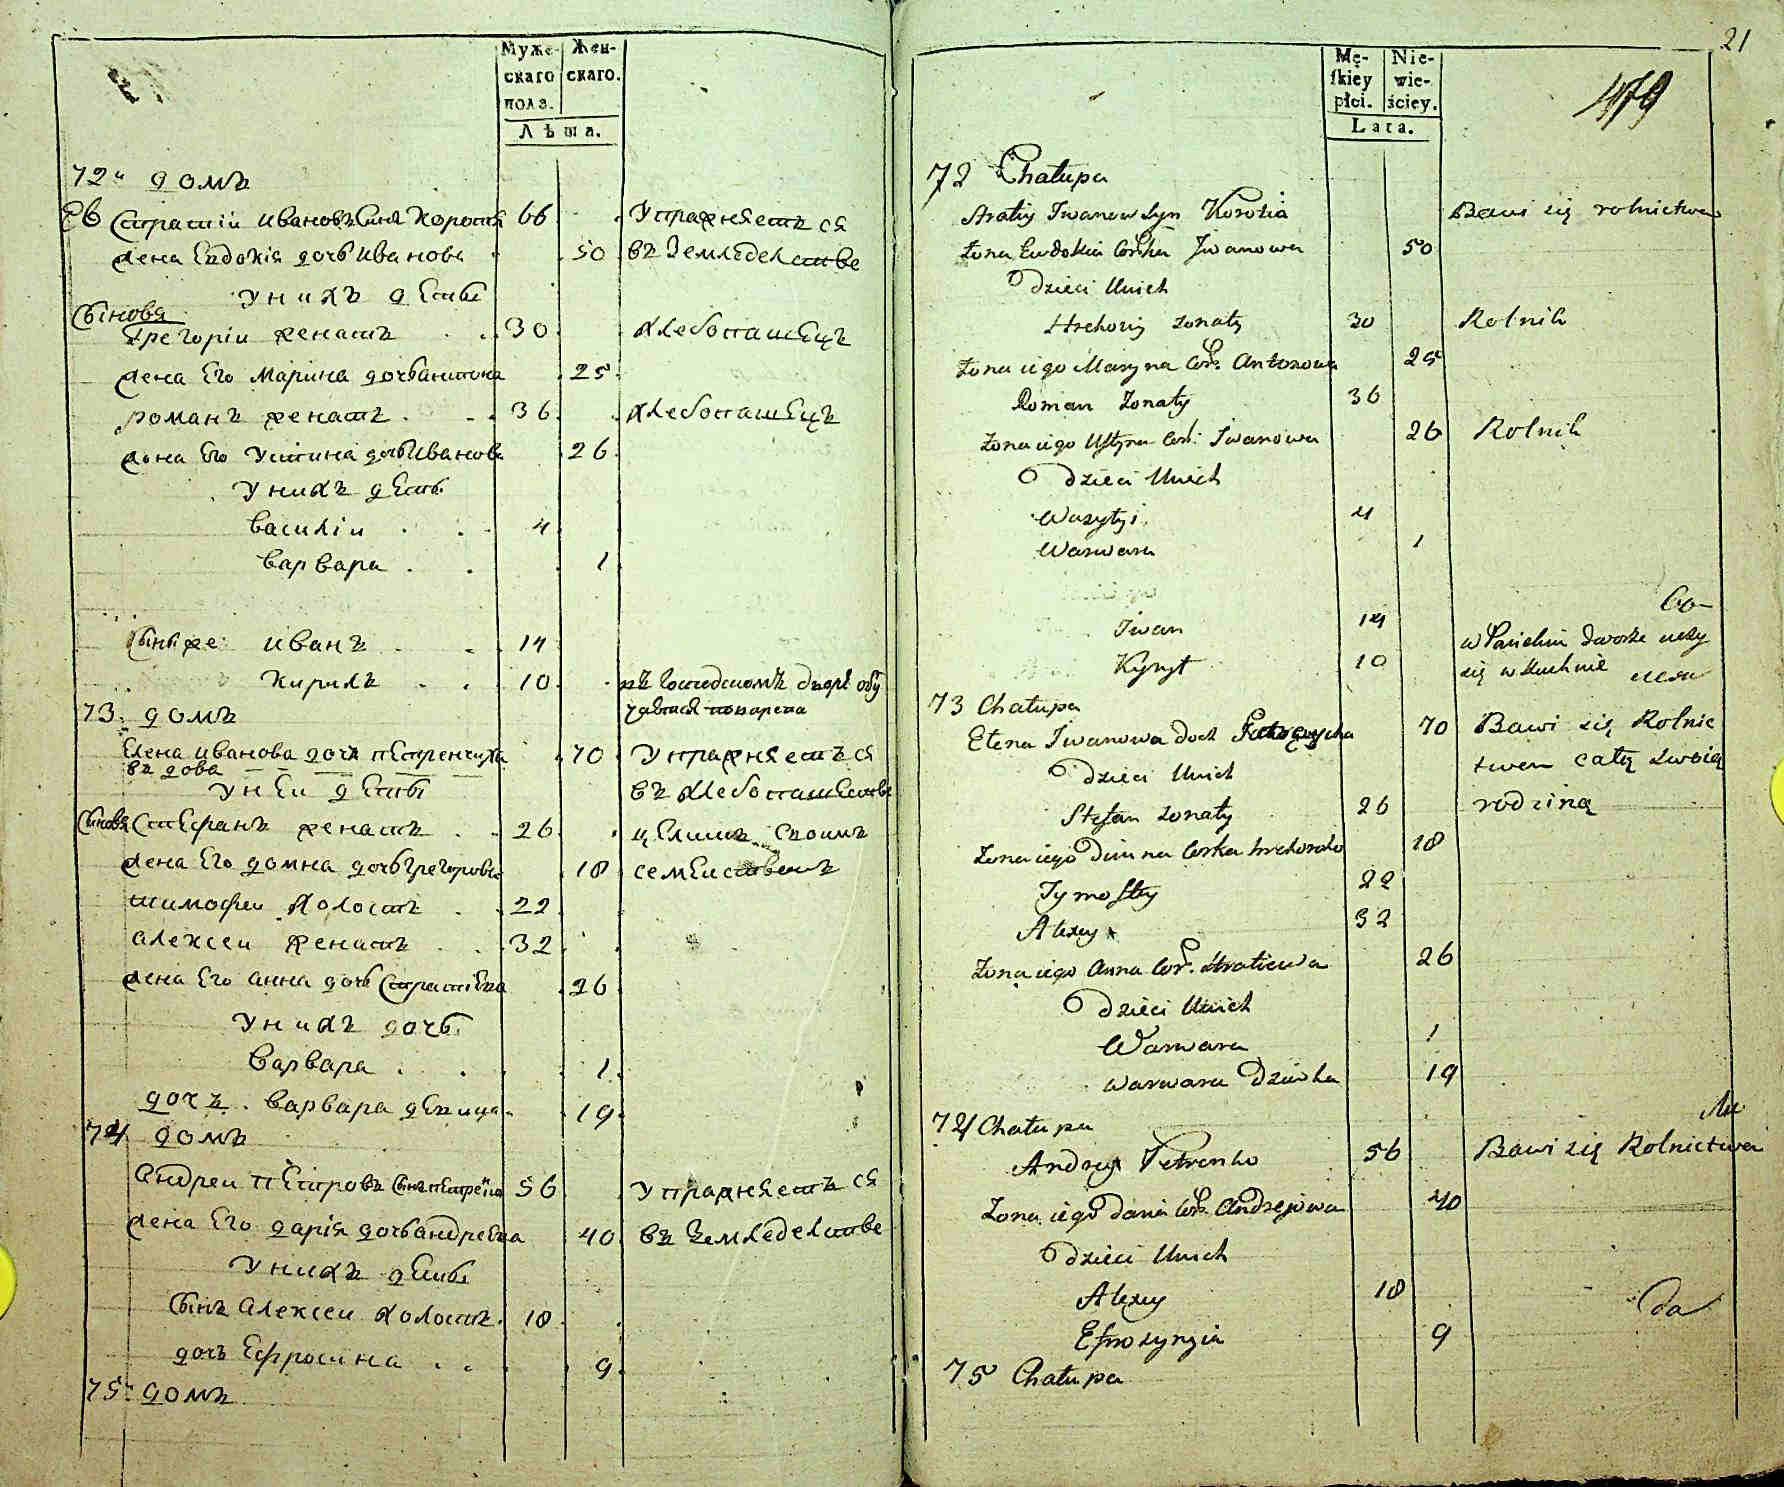 Муже- Жен-
скаго скаго.
пола.
Лѣта.
72й домъ
Ев Стратіи Ивановъ Сынъ Коротя 66 Упражняетъ ся
жена Евдокія дочь Иванова 50 въ Земледелстве
У нихъ дети
Сыновя
Грегоріи женатъ 30 хлебопашецъ
жена Его Марина дочь антонова 25
романъ женатъ 36 хлебопашецъ
жена Его Устина дочь Иванова 26
У нихъ дети
василіи 4
варвара 1
Сыны же иванъ 14
кирилъ 10 въ Господскомъ дворе обу
чается поварена
73 домъ
Елена иванова дочь петренчиха 70 Упражняетъ ся
вдова
У неи дети въ хлебопашестве
Сыновя Стефанъ женатъ 26 целимъ своимъ
жена Его домна дочь грегорова 18 семеиствомъ
тимофеи холостъ 22
алексеи женатъ 32
жена Его анна дочь Стратіева 26
У нихъ дочь
варвара 1
дочъ варвара девица 19
74 домъ
андреи петровъ Сынъ петренко 56 Упражняетъ ся
жена Его дарія дочь андреева 40 въ Земледелстве
У нихъ дети
Сынъ алексеи холостъ 18
дочь Ефросина 9
75 домъ
21
Mę- Nie-
skiey wie-
płci. ściey.
Lata.
479
72 Chałupa
Stratiy Iwanow Syn Korotia Bawi się rolnictwem
Żona Ewdokia Corka Iwanowa 50
Dzieci Unich
Hrehoriy żonaty 30 Rolnik
Żona iego Maryna Cor. Antonowa 25
Roman żonaty 36
Żona iego Ustyna Cor. Iwanowa 26 Rolnik
Dzieci Unich
Wasylyi 4
Warwara 1
Iwan 14
Kyrył 10
w Pańskim dworze uczy
się w kuchnie
73 Chałupa
Elena Iwanowa doch 70 Bawi się Rolnic
Dzieci Unich twem całą swoią
Stefan żonaty 26 rodziną
Żona iego Dimna Corka hrehorowa 18
Tymofiy 22
Alexy 32
Żona iego Anna Cor. Stratiewa 26
Dzieci Unich
Warwara 1
Warwara Dziwka 19
74 Chałupa
Andrzey Petrenko 56 Bawi się Rolnictwem
Żona iego Daria Cor. Andrzejowa 40
Dzieci Unich
Alexey 18
Efrozynyia 9
75 Chałupa